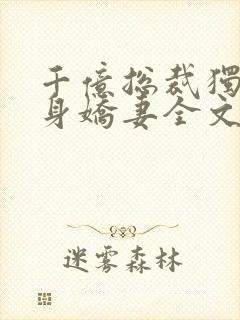 千億總裁獨
身嬌妻全文
迷雾森林